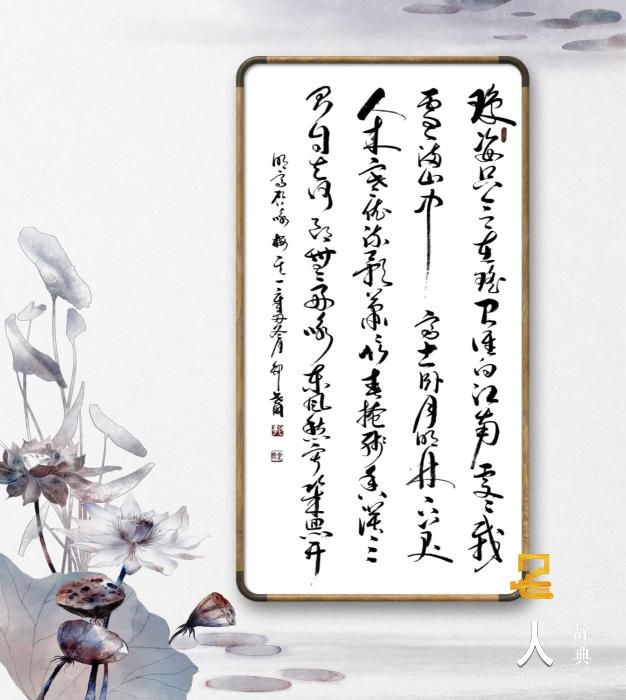 琼姿只合在瑶台谁向江南处々栽
雪满山中高士卧月明林下美
人来寒依疏影萧々竹春掩残香漠々
苔自去何郎無好咏东风愁寂几回开
明高启咏梅其一辛丑冬月
名人
辞典